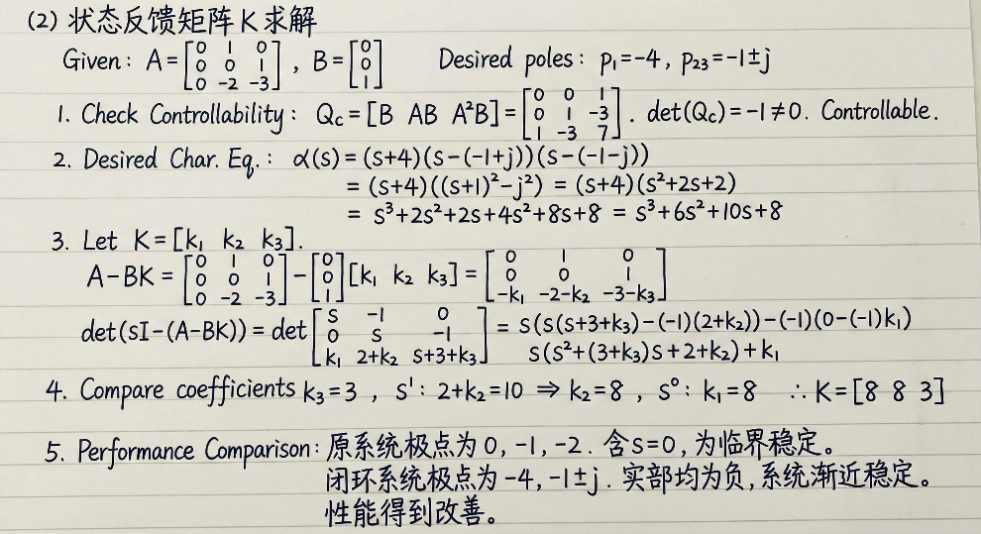 (2) 状态反馈矩阵 K 求解
Given: A=[0 1 0; 0 0 1; 0 -2 -3], B=[0; 0; 1]    Desired poles: p₁=-4, p₂₃=-1±j
1. Check Controllability: Qc=[B AB A²B]=[0 0 1; 0 1 -3; 1 -3 7]. det(Qc)=-1≠0. Controllable.
2. Desired Char. Eq.: α(s)=(s+4)(s-(-1+j))(s-(-1-j))
=(s+4)((s+1)²-j²)=(s+4)(s²+2s+2)
= s³+2s²+2s+4s²+8s+8 = s³+6s²+10s+8
3. Let K=[k₁ k₂ k₃].
A-BK=[0 1 0; 0 0 1; 0 -2 -3]-[0; 0; 1][k₁ k₂ k₃]=[0 1 0; 0 0 1; -k₁ -2-k₂ -3-k₃]
det(sI-(A-BK))=det[s -1 0; 0 s -1; k₁ 2+k₂ s+3+k₃]=s(s(s+3+k₃)-(-1)(2+k₂))-(-1)(0-(-1)k₁)
s(s²+(3+k₃)s+2+k₂)+k₁
4. Compare coefficients k₃=3, s¹: 2+k₂=10 ⇒ k₂=8, s⁰: k₁=8 ∴ K=[8 8 3]
5. Performance Comparison: 原系统极点为 0, -1, -2. 含s=0, 为临界稳定。
闭环系统极点为 -4, -1±j. 实部均为负, 系统渐近稳定。
性能得到改善。